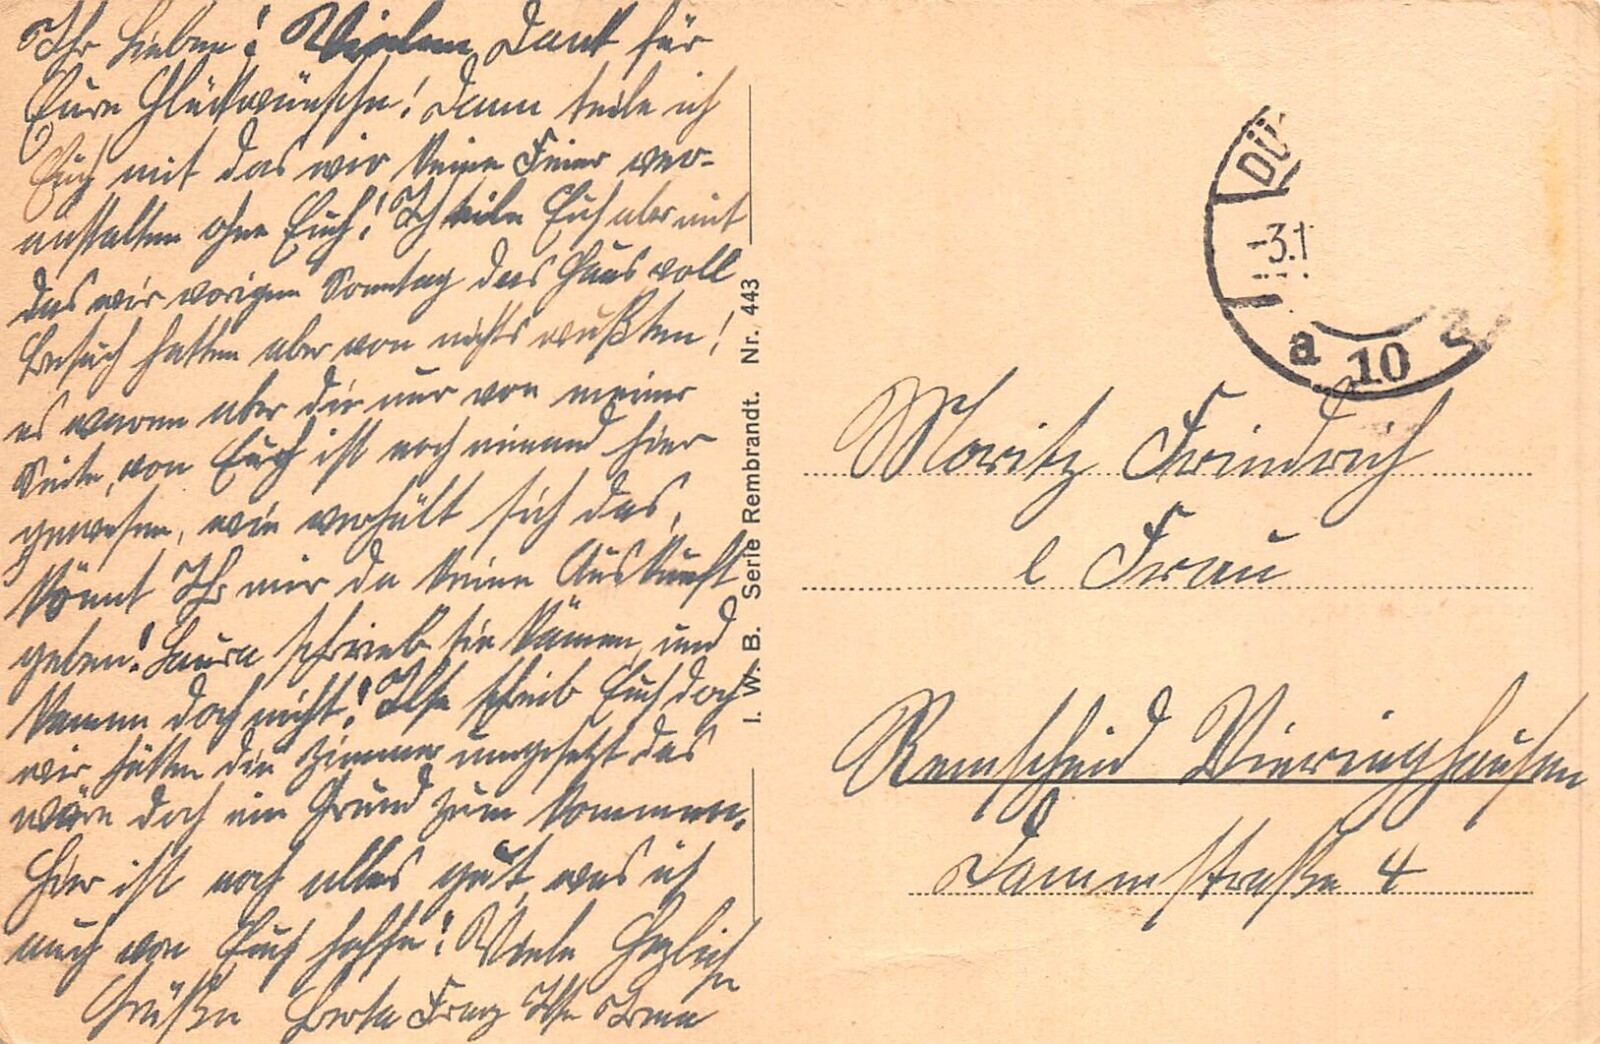 Ihr Lieben! Vielen Dank für
Eure Glückwünsche! Dann teile ich
Euch mit das wir keine Feier ver-
anstalten ohne Euch! Ich teile Euch aber mit
das wir vorigen Sonntag das Haus voll
Besuch hatten aber von nichts wußten!
es waren aber die nur von meiner
Seite, von Euch ist noch niemand hier
gewesen, wie verhält sich das,
könnt Ihr mir da keine Auskunft
geben! Laura schrieb sie kämen, und
kamen doch nicht! Ilse schrieb Euch doch
wir hätten die Zimmer umgesetzt das
wäre doch ein Grund zum kommen.
Hier ist noch alles gut, was ich
auch von Euch hoffe! Viele Herzliche
Grüße Herta Franz Ilse Irma
I. W. B. Serie Rembrandt. Nr. 443
DÜ
-3.1
a 10
Moritz Friedrich
& Frau
Remscheid Vieringhausen
Dammstraße 4